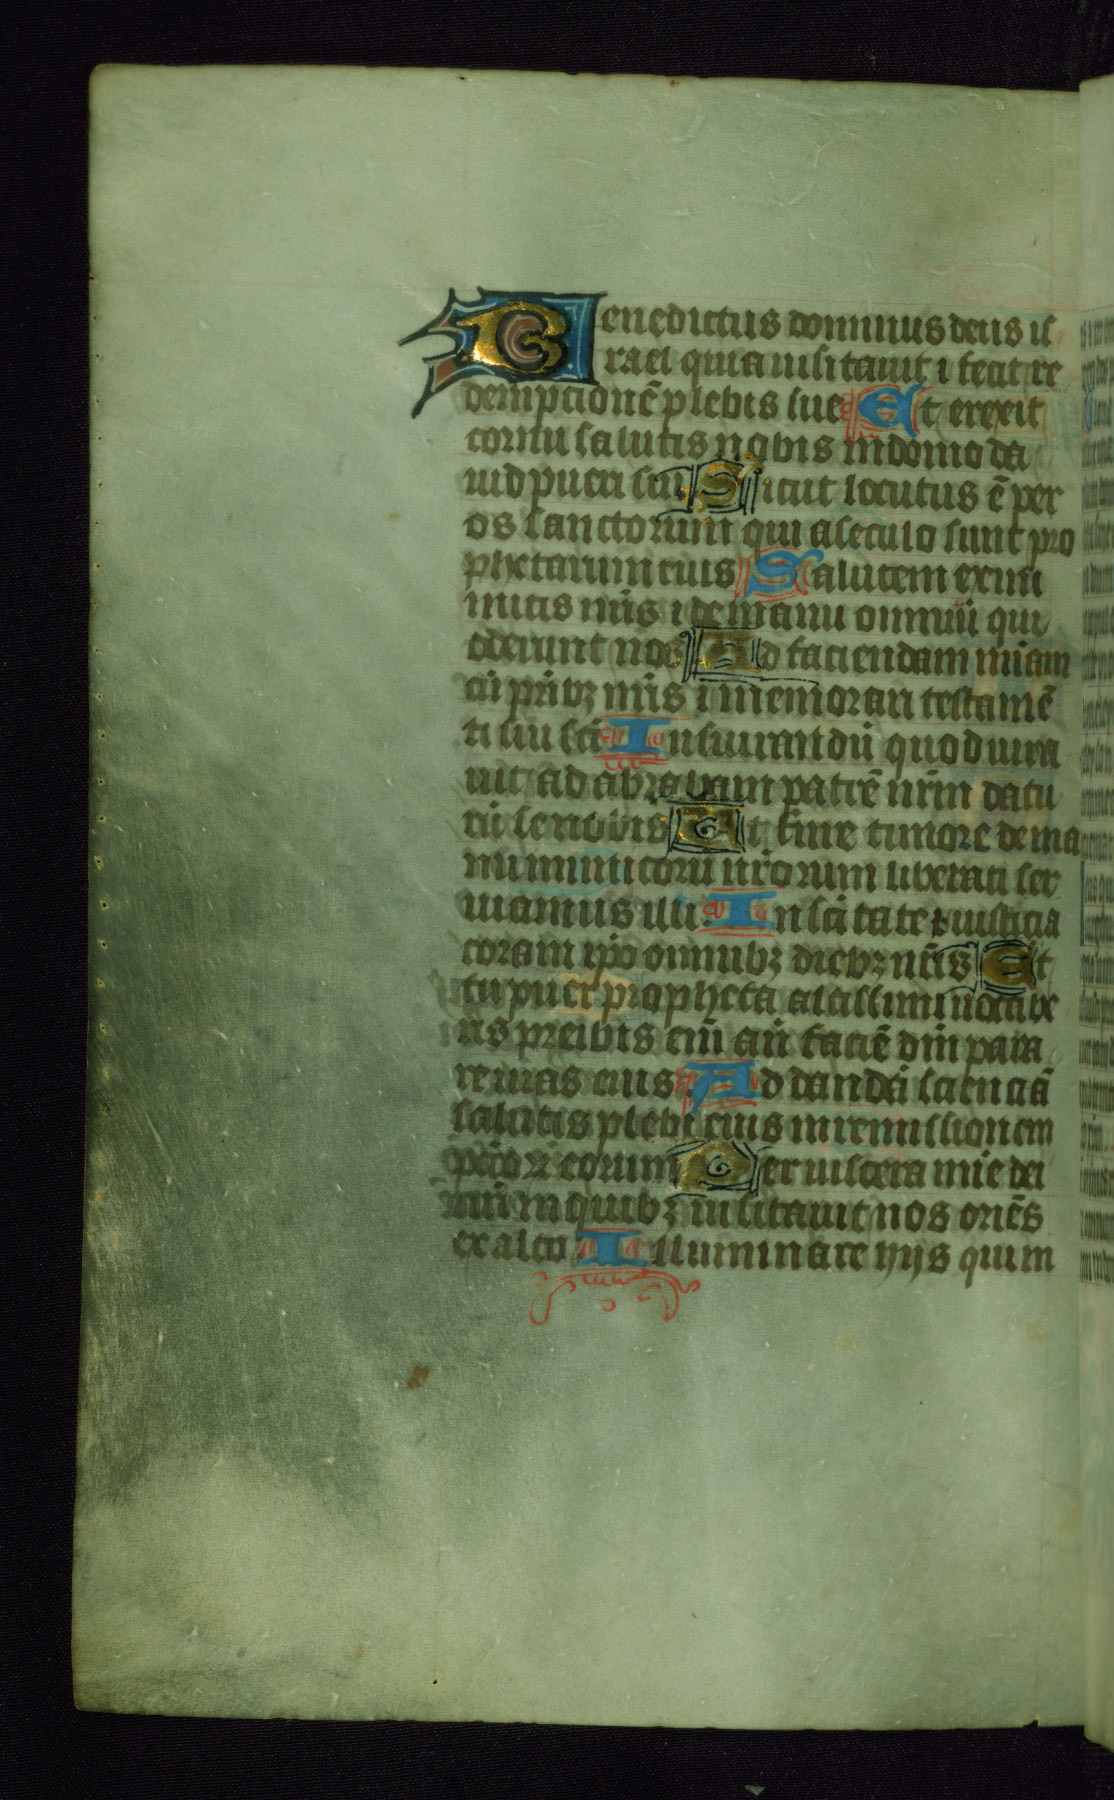 Benedictus dominus deus is
rael quia uisitauit ⁊ fecit re
dempcionē plebis sue Et erexit
cornu salutis nobis in domo da
uid pueri sui Sicut locutus ē per
os sanctorum qui a seculo sunt pro
phetarum eius Salutem ex ini
micis nr̄is ⁊ de manu omniū qui
oderunt nos Ad faciendam mīam
cū pr̄ibꝫ nr̄is ⁊ memorari testamē
ti sui sc̄i Iusiurandū quod iura
uit ad abraham patrē nr̄m datu
rū se nobis Ut sine timore de ma
nu inimicorū nr̄orum liberati ser
uiamus illi In sc̄itate ⁊ iusticia
coram ip̄o omnibꝫ diebꝫ nr̄is Et
tu puer propheta altissimi uocabe
ris preibis eni̅ an̄ faciē dn̄i para
re uias eius Ad dandā scienciā
salutis plebi eius in remissionem
pēcoꝝ eorum Per uiscera mīe dei
nr̄i in quibꝫ uisitauit nos oriēs
ex alto Illuminare hijs qui in